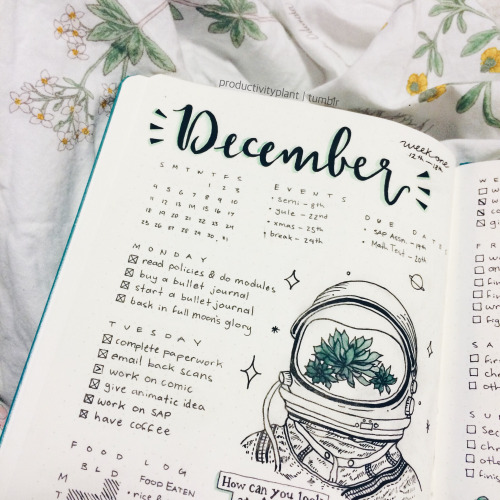 productivityplant | tumblr
December
week one
12th - 18th
S M T W T F S
1 2 3
4 5 6 7 8 9 10
11 12 13 14 15 16 17
18 19 20 21 22 23 24
25 26 27 28 29 30 31
EVENTS
• semi - 8th
• yule - 22nd
• xmas - 25th
• break - 29th
DUE DATES
• SAP Assn. - 19th
• Math Test - 20th
MONDAY
read policies & do modules
buy a bullet journal
start a bullet journal
bask in full moon's glory
TUESDAY
complete paperwork
email back scans
work on comic
give animatic idea
work on SAP
have coffee
FOOD LOG
B L D FOOD EATEN
M
T
How can you look